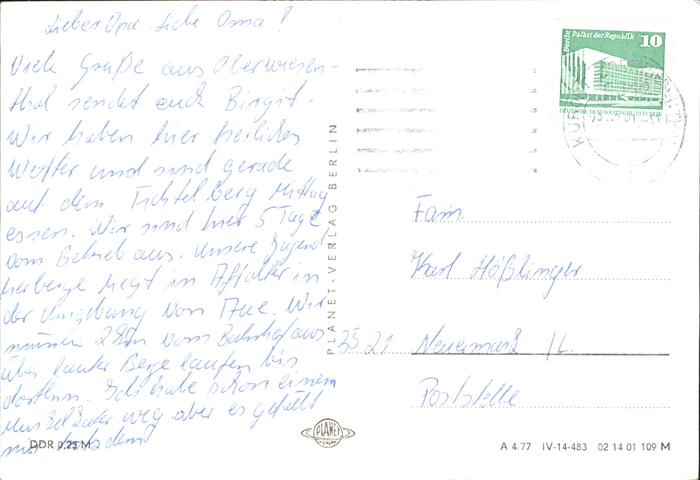 Lieber Opa, liebe Oma!
Viele Grüße aus Oberwiesen-
thal sendet euch Birgit.
Wir haben hier herliches
Wetter und sind gerade
auf dem Fichtelberg Mittag
essen. Wir sind hier 5 Tage
vom Betrieb aus. Unsere Jugend
herberge liegt in Affalter in
der Umgebung von Aue. Wir
müssen 2 km vom Bahnhof aus
über lauter Berge laufen bis
dorthin. Ich habe schon einen
Muskelkater weg aber es gefällt
mir trotzdem
DDR 0,25 M
PLANET-VERLAG BERLIN
PLANET
VERLAG
Berlin Palast der Republik 10
DEUTSCHE DEMOKRATISCHE REPUBLIK
Fam.
Karl Hößlinger
3521 Neuermark /L.
Poststelle
A 4/77 IV-14-483 02 14 01 109 M